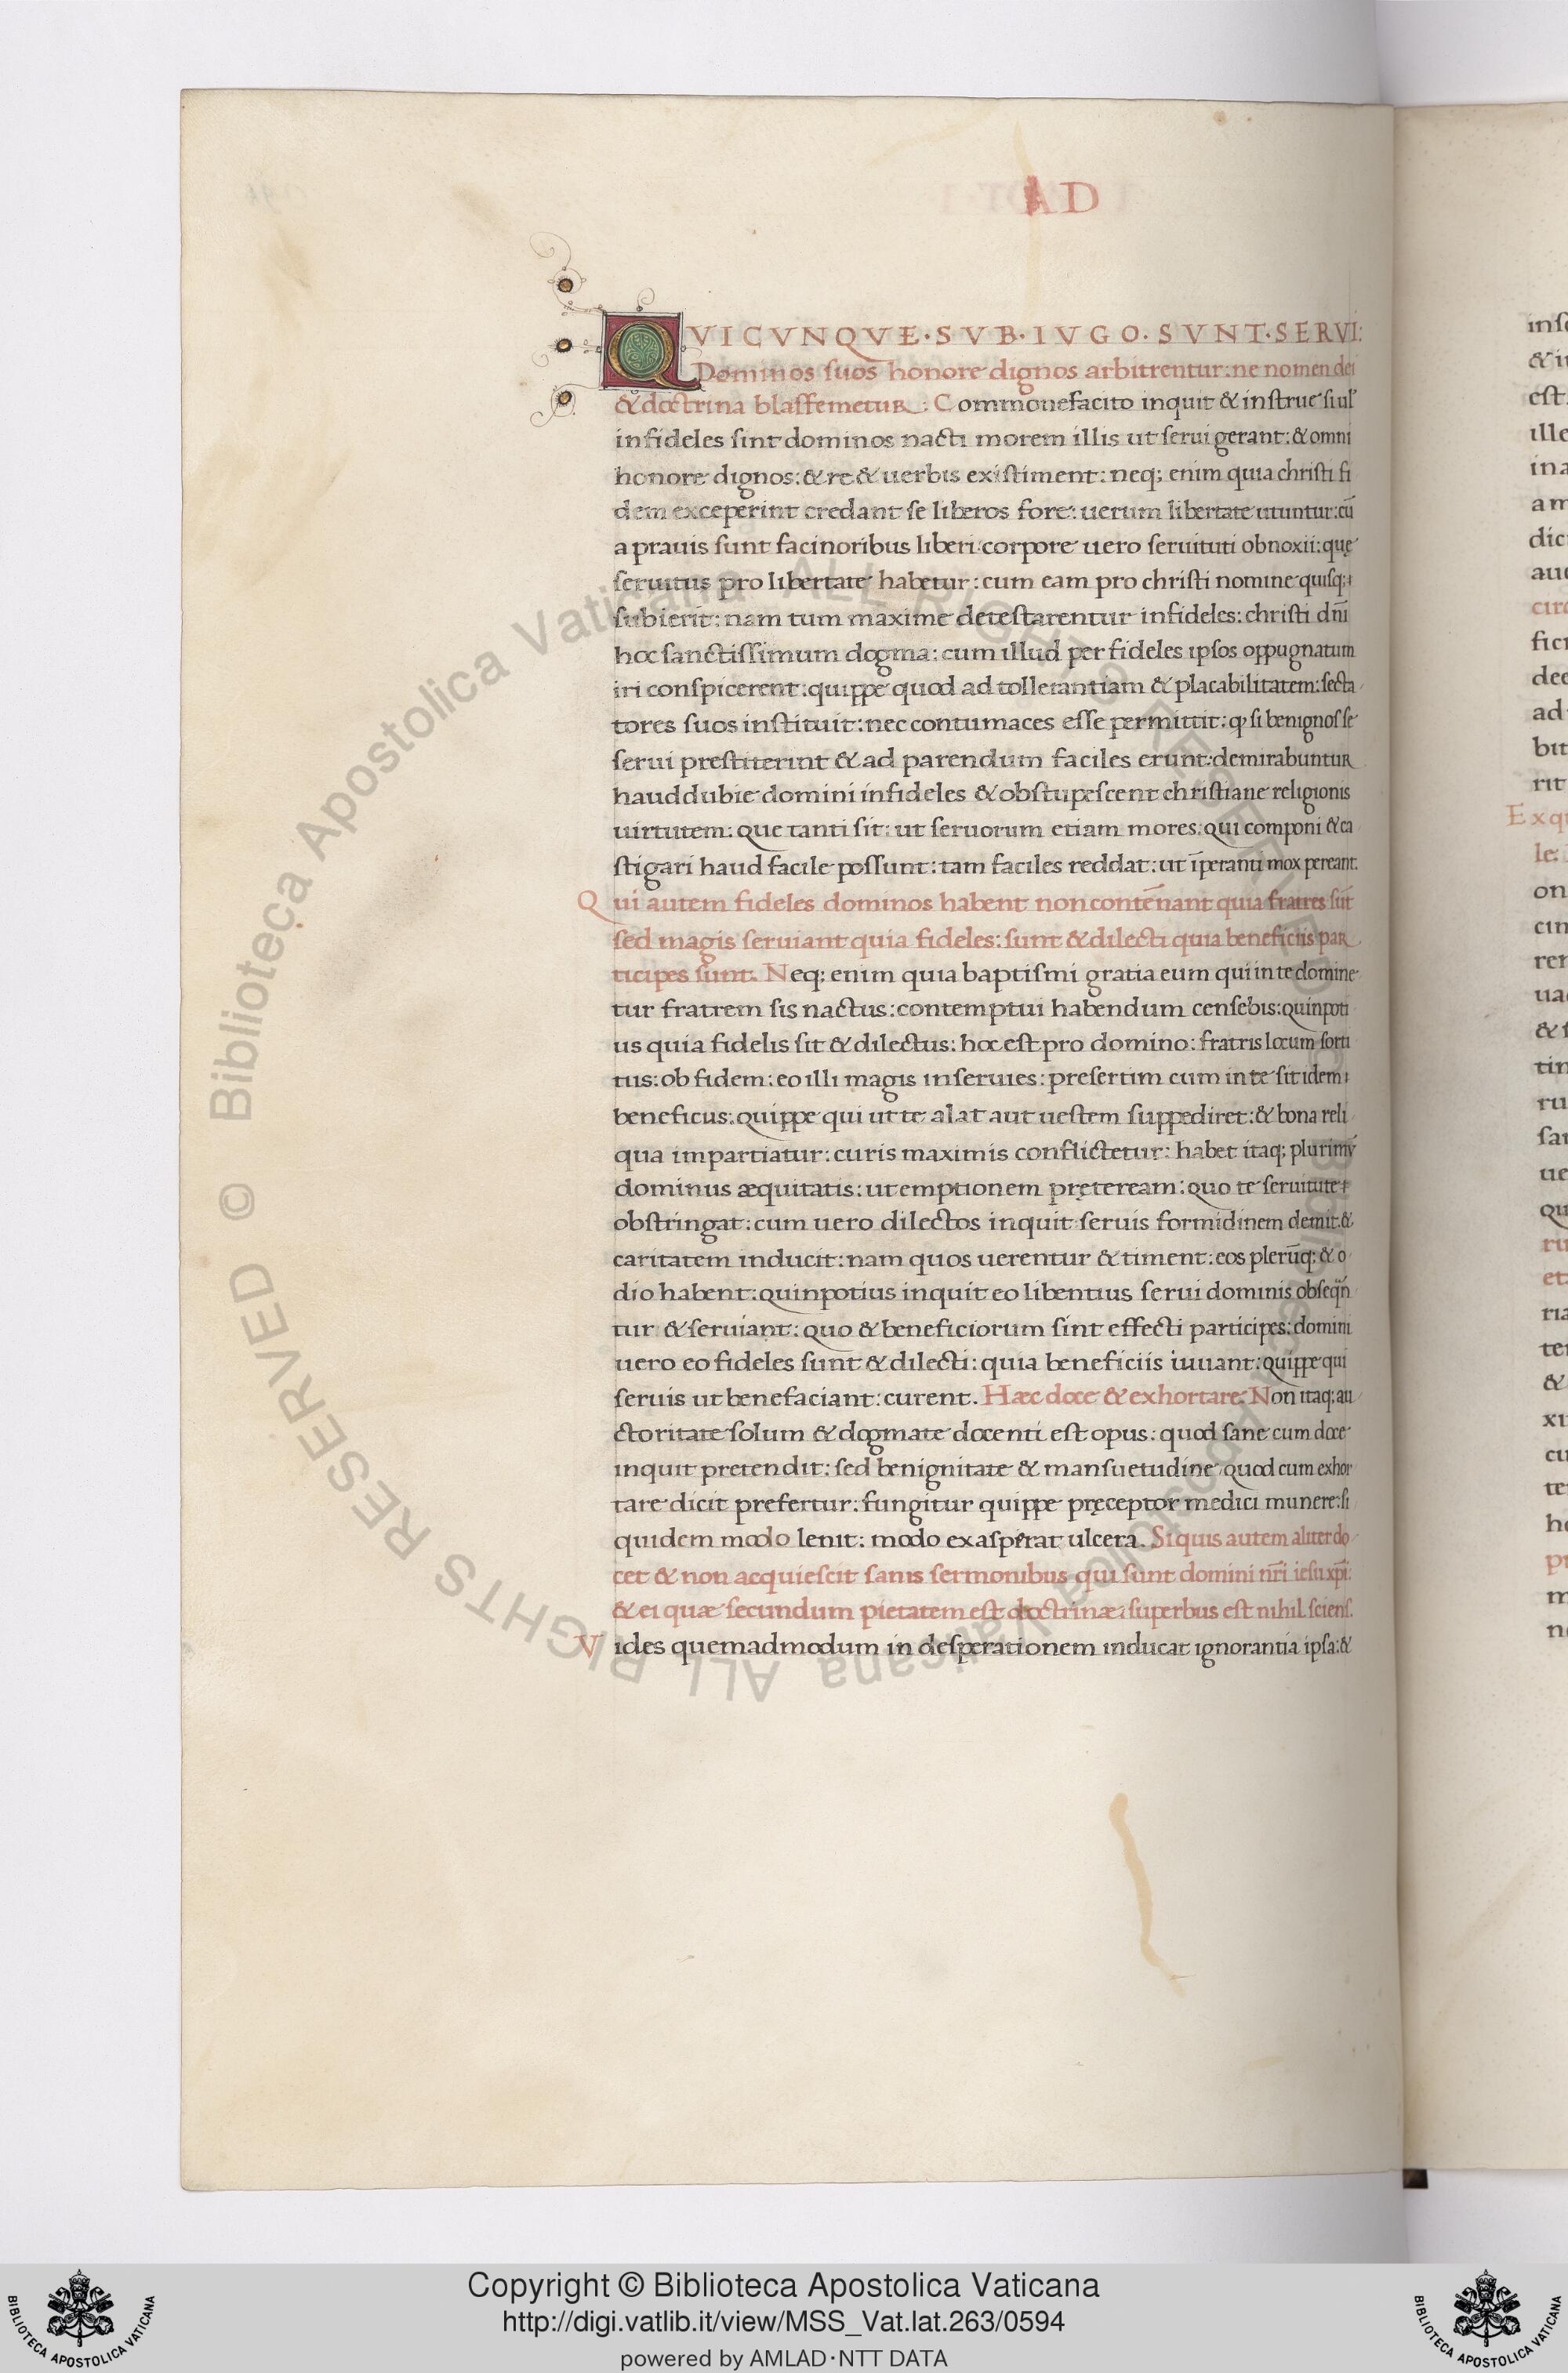 AD
QVICVNQVE·SVB·IVGO·SVNT·SERVI:
Dominos suos honore dignos arbitrentur: ne nomen dei
& doctrina blassemetur: Commonefacito inquit & instrue siul'
infideles sint dominos nacti morem illis ut serui gerant: & omni
honore dignos: & re & uerbis existiment: neq; enim quia christi fi
dem exceperint credant se liberos fore: uerum libertate utuntur: cū
a prauis sunt facinoribus liberi: corpore uero seruituti obnoxii: quę
seruitus pro libertate habetur: cum eam pro christi nomine quisq;
subierit: nam tum maxime detestarentur infideles: christi dn̄i
hoc sanctissimum dogma: cum illud per fideles ipsos oppugnatum
iri conspicerent: quippe quod ad tollerantiam & placabilitatem: secta
tores suos instituit: nec contumaces esse permittit: ꝙ si benignos se
serui prestiterint & ad parendum faciles erunt: demirabuntur
haud dubie domini infideles & obstupescent christiane religionis
uirtutem: que tanti sit: ut seruorum etiam mores: qui componi & ca
stigari haud facile possunt: tam faciles reddat: ut īperanti mox pereant.
Qui autem fideles dominos habent non contēnant quia fratres sūt
sed magis seruiant quia fideles: sunt & dilecti quia beneficiis par
ticipes sunt. Neq; enim quia baptismi gratia eum qui in te domine
tur fratrem sis nactus: contemptui habendum censebis: quinpoti
us quia fidelis sit & dilectus: hoc est pro domino: fratris locum sorti
tus: ob fidem: eo illi magis inseruies: presertim cum in te sit idem
beneficus: quippe qui ut te alat aut uestem suppediret: & bona reli
qua impartiatur: curis maximis conflictetur: habet itaq; plurimū
dominus æquitatis: ut emptionem pręteream: quo te seruitute
obstringat: cum uero dilectos inquit seruis formidinem demit: &
caritatem inducit: nam quos uerentur & timent: eos plerūq; & o
dio habent: quinpotius inquit eo libentius serui dominis obseqn̄
tur & seruiant: quo & beneficiorum sint effecti participes: domini
uero eo fideles sunt & dilecti: quia beneficiis iuuant: quippe qui
seruis ut benefaciant: curent. Hæc doce & exhortare. Non itaq; au
ctoritate solum & dogmate docenti est opus: quod sane cum doce
inquit pretendit: sed benignitate & mansuetudine quod cum exhor
tare dicit prefertur: fungitur quippe pręceptor medici munere: si
quidem modo lenit: modo exasperat ulcera. Si quis autem aliter do
cet & non acquiescit sanis sermonibus qui sunt domini nr̄i iesu xp̄i:
& ei quæ secundum pietatem est doctrinæ: superbus est nihil sciens.
Vides quemadmodum in desperationem inducat ignorantia ipsa: &
© Biblioteca Apostolica Vaticana ALL RIGHTS RESERVED
© Biblioteca Apostolica Vaticana ALL RIGHTS RESERVED
Copyright © Biblioteca Apostolica Vaticana
http://digi.vatlib.it/view/MSS_Vat.lat.263/0594
powered by AMLAD·NTT DATA
BIBLIOTECA APOSTOLICA VATICANA
BIBLIOTECA APOSTOLICA VATICANA